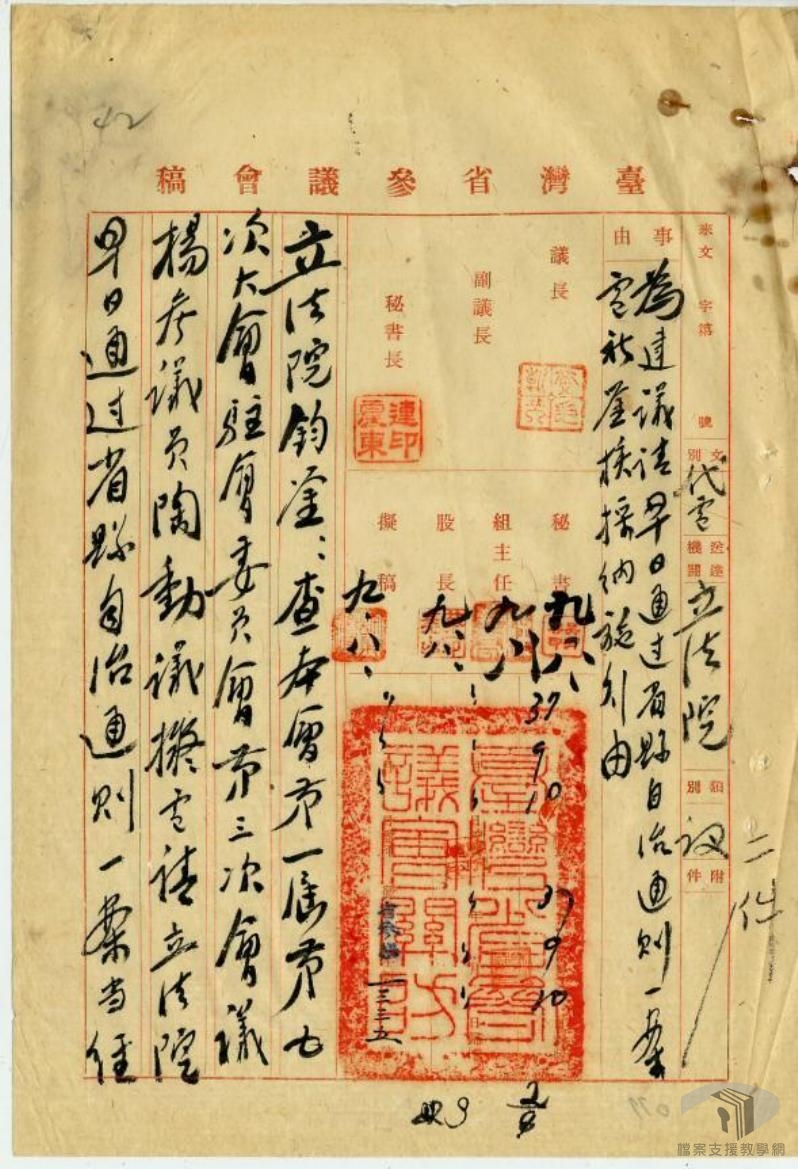 42
臺灣省參議會稿
來文 字第 號
文別 代電
送達機關 立法院
類別 議
附件
二件
事由 為建議請早日通過省縣自治通則一案
電祈鑒核採納施行由
議長
副議長
秘書長
連印震東
秘書 九、八、
組主任 九、八、
股長 九、八、
擬稿 九、八、
37 9 10
37 9 10
臺灣省參議會關防
一三三五
立法院鈞鑒：查本會第一屆第七
次大會駐會委員會第三次會議
楊參議員陶動議擬電請立法院
早日通过省縣自治通則一案当経
079
檔案支援教學網